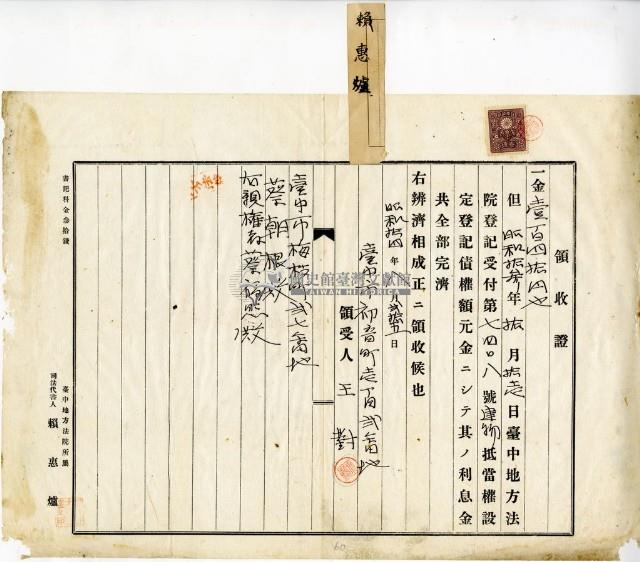 賴惠爐
領收證
一金壹百四拾円也
但昭和拾參年拾月拾壱日臺中地方法
院登記受付第七四〇八號建物抵當權設
定登記債權額元金ニシテ其ノ利息金
共全部完濟
右辨濟相成正ニ領收候也
昭和拾四年 月貳拾五日
臺中市初音町壱百貳番地
領受人 王對
臺中市梅枝町貳七番地
蔡朝
書記料金參拾錢
臺中地方法院所屬
司法代書人 賴惠爐
國史館臺灣文獻館
TAIWAN HISTORICA